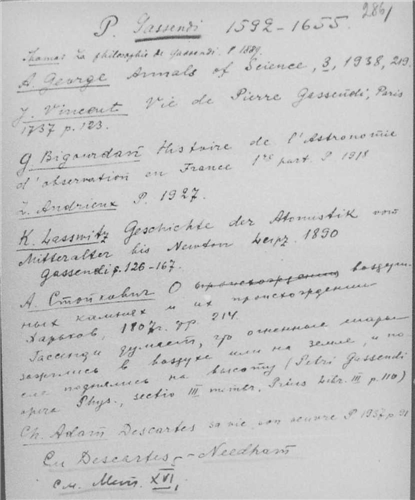 286/
P. Gassendi 1592-1655.
Thomas La philosophie de Gassendi. P 1889.
A. George Annals of Science, 3, 1938, 219.
J. Vincent Vie de Pierre Gassendi, Paris
1737 p. 123.
G Bigourdan Histoire de l'Astronomie
d'observation en France 1re part. P 1918
L. Andrieux P. 1927.
K. Lasswitz Geschichte der Atomistik vom
Mittelalter bis Newton Leipz. 1890
Gassendi p. 126-167.
А. Стойкович О происхождении воздуш-
ных камнях и их происхождении
Харьков, 1807г. стр. 214.
Гассенди думает, что огненные шары
зажглись в воздухе или на земле, и по-
сле поднялись на высоту (Petri Gassendi
opera Phys., sectio III membr. Prius Libr. III p. 110)
Ch. Adam Descartes sa vie, son oeuvre P 1937 p. 91
См Descartes, - Needham
см. Мет. XVI,